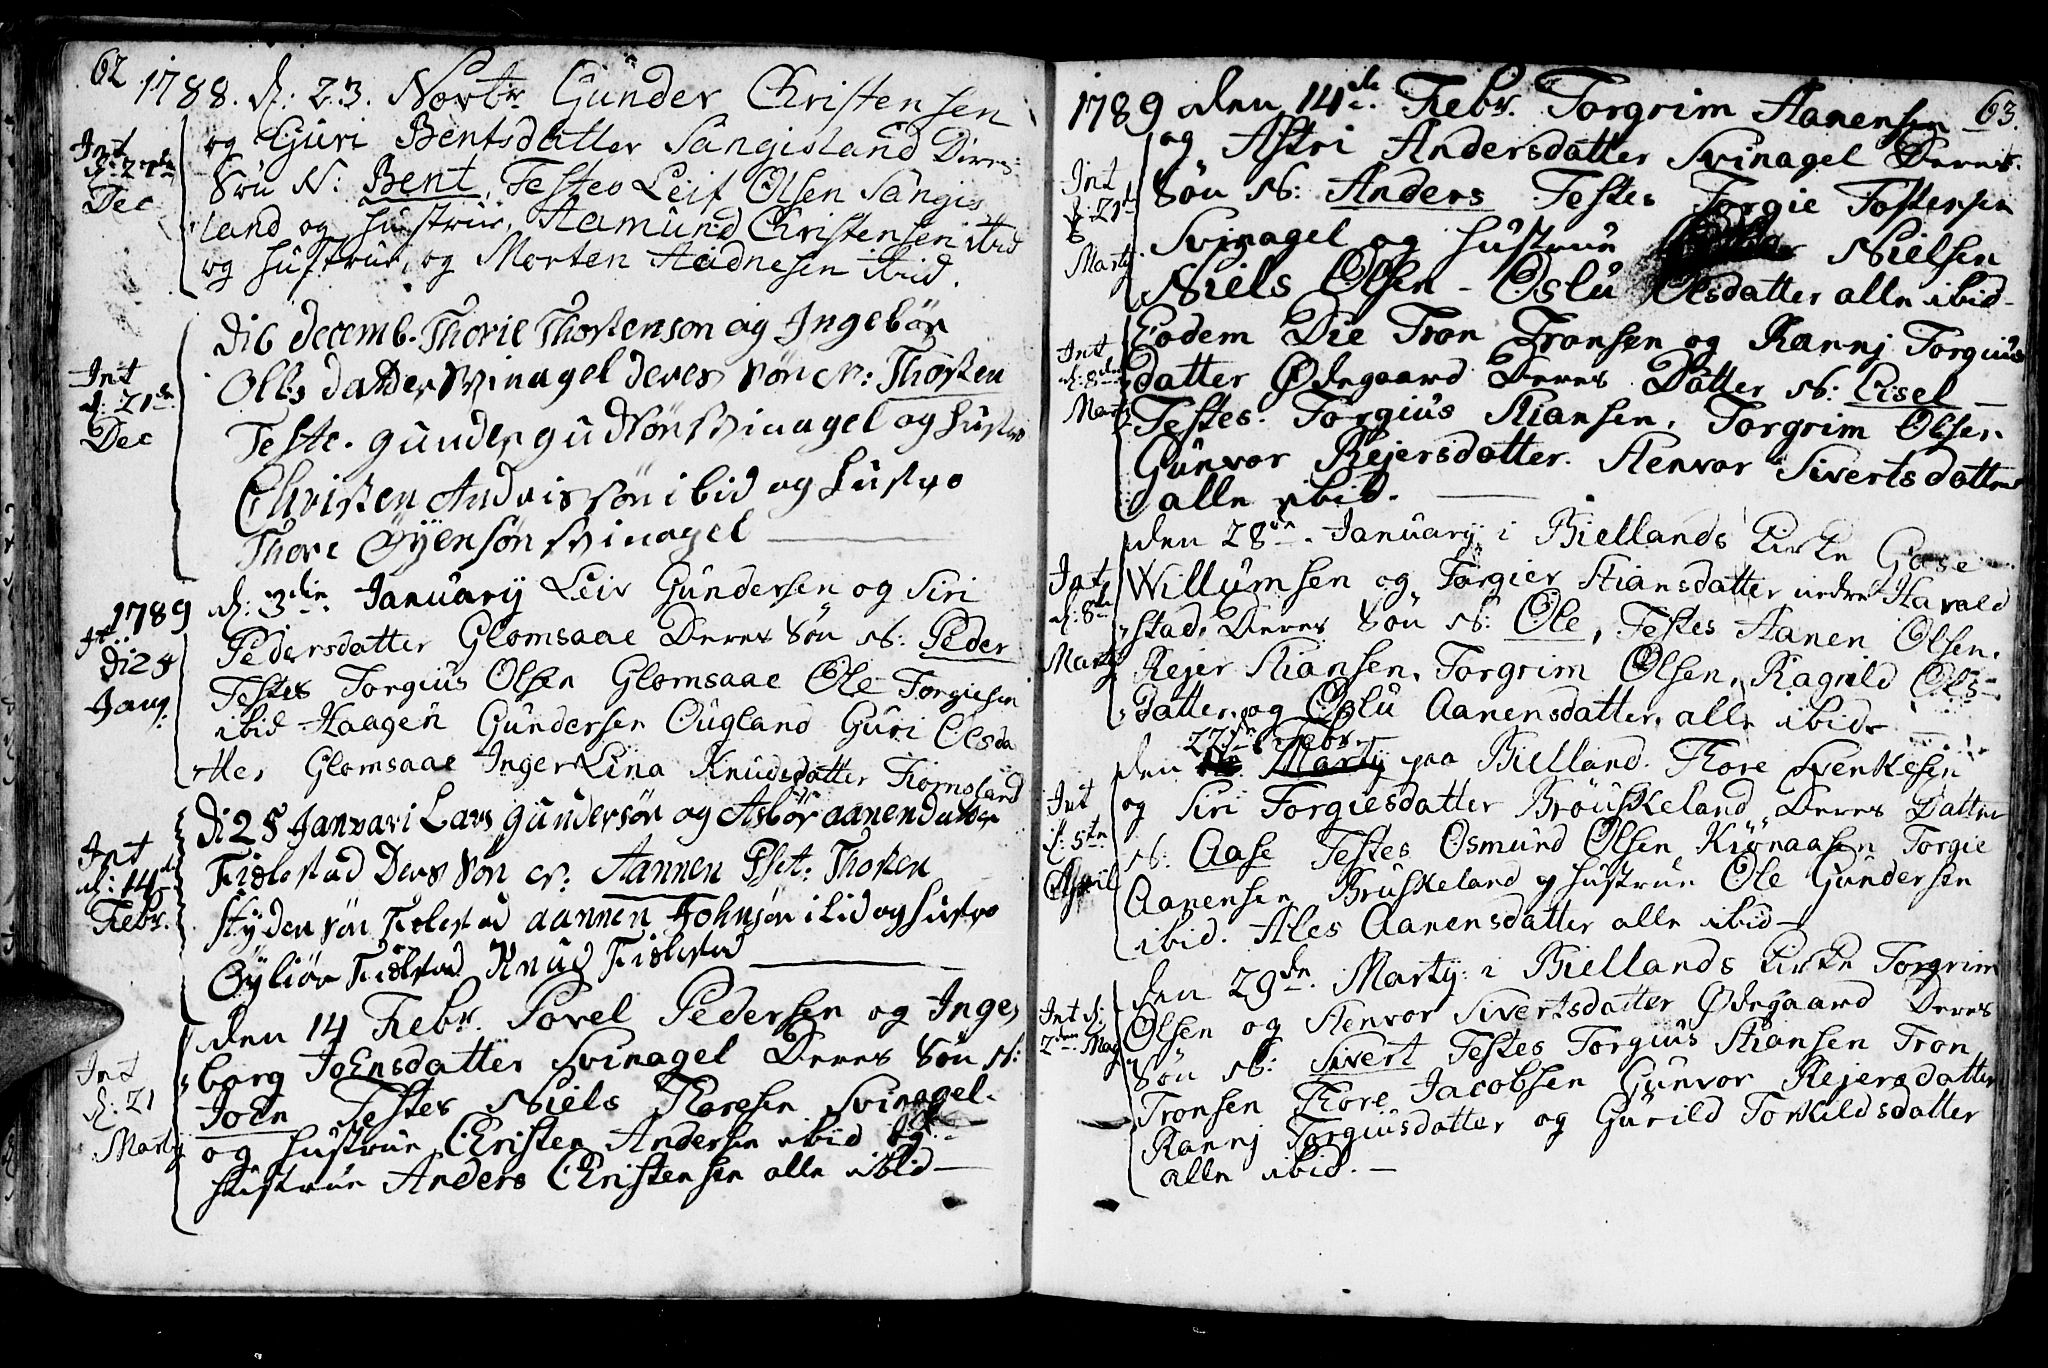 62
1788. d: 23. Novbr Gunder Christensen
og Guri Bentsdatter Sangisland Deres
Søn N: Bent, Testes Leif Olsen Sangis
land og Hustrue, Aamund Christensen ibid
og Hustrue, og Morten Aadnesen ibid.
Int
Dec
Di 6 decemb. Thorie Thorstenson og Ingebör
Olles datter Svinagel deres Søn N: Thorsten
Teste. gunder gudsøn Svinagel og Hustro
Christen Andris søn ibid og Hustro
Thore Öyensøn Svinagel
Int
d: 21de
Dec
1789 d: 3die January Leiv Gundersen og Siri
Pedersdatter Glomsaae Deres Søn N: Peder
Testes Torgius Olsen Glomsaae Ole Torgiesen
ibid Haagen Gundersen Øugland Guri Olsda
tter Glomsaae Inger Lina Knudsdatter Fiornsland
Int
Di 25
Janv:
Di 25 Janvari Lars gundersøn og Asbör aanendatter
Fiølestad Deres Søn N: Aannen Test: Thosten
Styden søn Fiølestad aannen Johnsøn ibid og Hustro
Gyliør Fiølestad Knud Fiølestad
Int
d: 14de
Febr.
den 14 Febr. Povel Pedersen og Inge,
borg Joensdatter Svinagel Deres Søn N:
Joen Testes Niels Thoresen Svinagel.
og Hustrue Christen Andersen ibid og
Hustrue Anders Christensen alle ibid
Int
d: 21
Marty
63.
1789 den 14de Febr. Torgrim Aanensen
og Astri Andersdatter Svinagel Deres
Søn N: Anders Testes Torgie Tostensen
Svinagel og Hustrue Nielsen
Niels Olsen - Oslu Olsdatter alle ibid
Int
d: 21de
Marty.
Eodem Die Tron Tronsen og Rannj Torgius
datter Ødegaard Deres Datter N: Eisel
Testes. Torgius Stiansen, Torgrim Olsen
Gunvor Rejersdatter. Stenvor Sivertsdatter
alle ibid.
Int
d: 8de
Marty
den 28de. January i Biellands Kirke Goese
Willumsen og Torgier Stiansdatter nedre Havald
stad, Deres Søn N: Ole, Testes Aanen Olsen.
Rejer Stiansen, Torgrim Olsen, Ragnild Ols
datter, og Oslu Aanensdatter, alle ibid
Int
d: 8de
Marty
27de Febr
den Marty paa Bielland. Thore Svenkesen
og Siri Torgiesdatter Brøuskeland, Deres Datter
N: Aase Testes Osmund Olsen Kiønaasen Torgie
Aanensen Bruskeland og Hustrue Ole Gundersen
ibid. Ales Aanensdatter alle ibid
Int
d: 5te
April
den 29de. Marty: i Biellands Kirke Torgrim
Olsen og Stenvor Sivertsdatter Ødegaard Deres
Søn N: Sivert Testes Torgius Stiansen Tron
Tronsen Thore Jacobsen Gunvor Rejersdatter
Rannj Torgiusdatter og Gurild Torkildsdatter
alle ibid.
Int d:
2den May